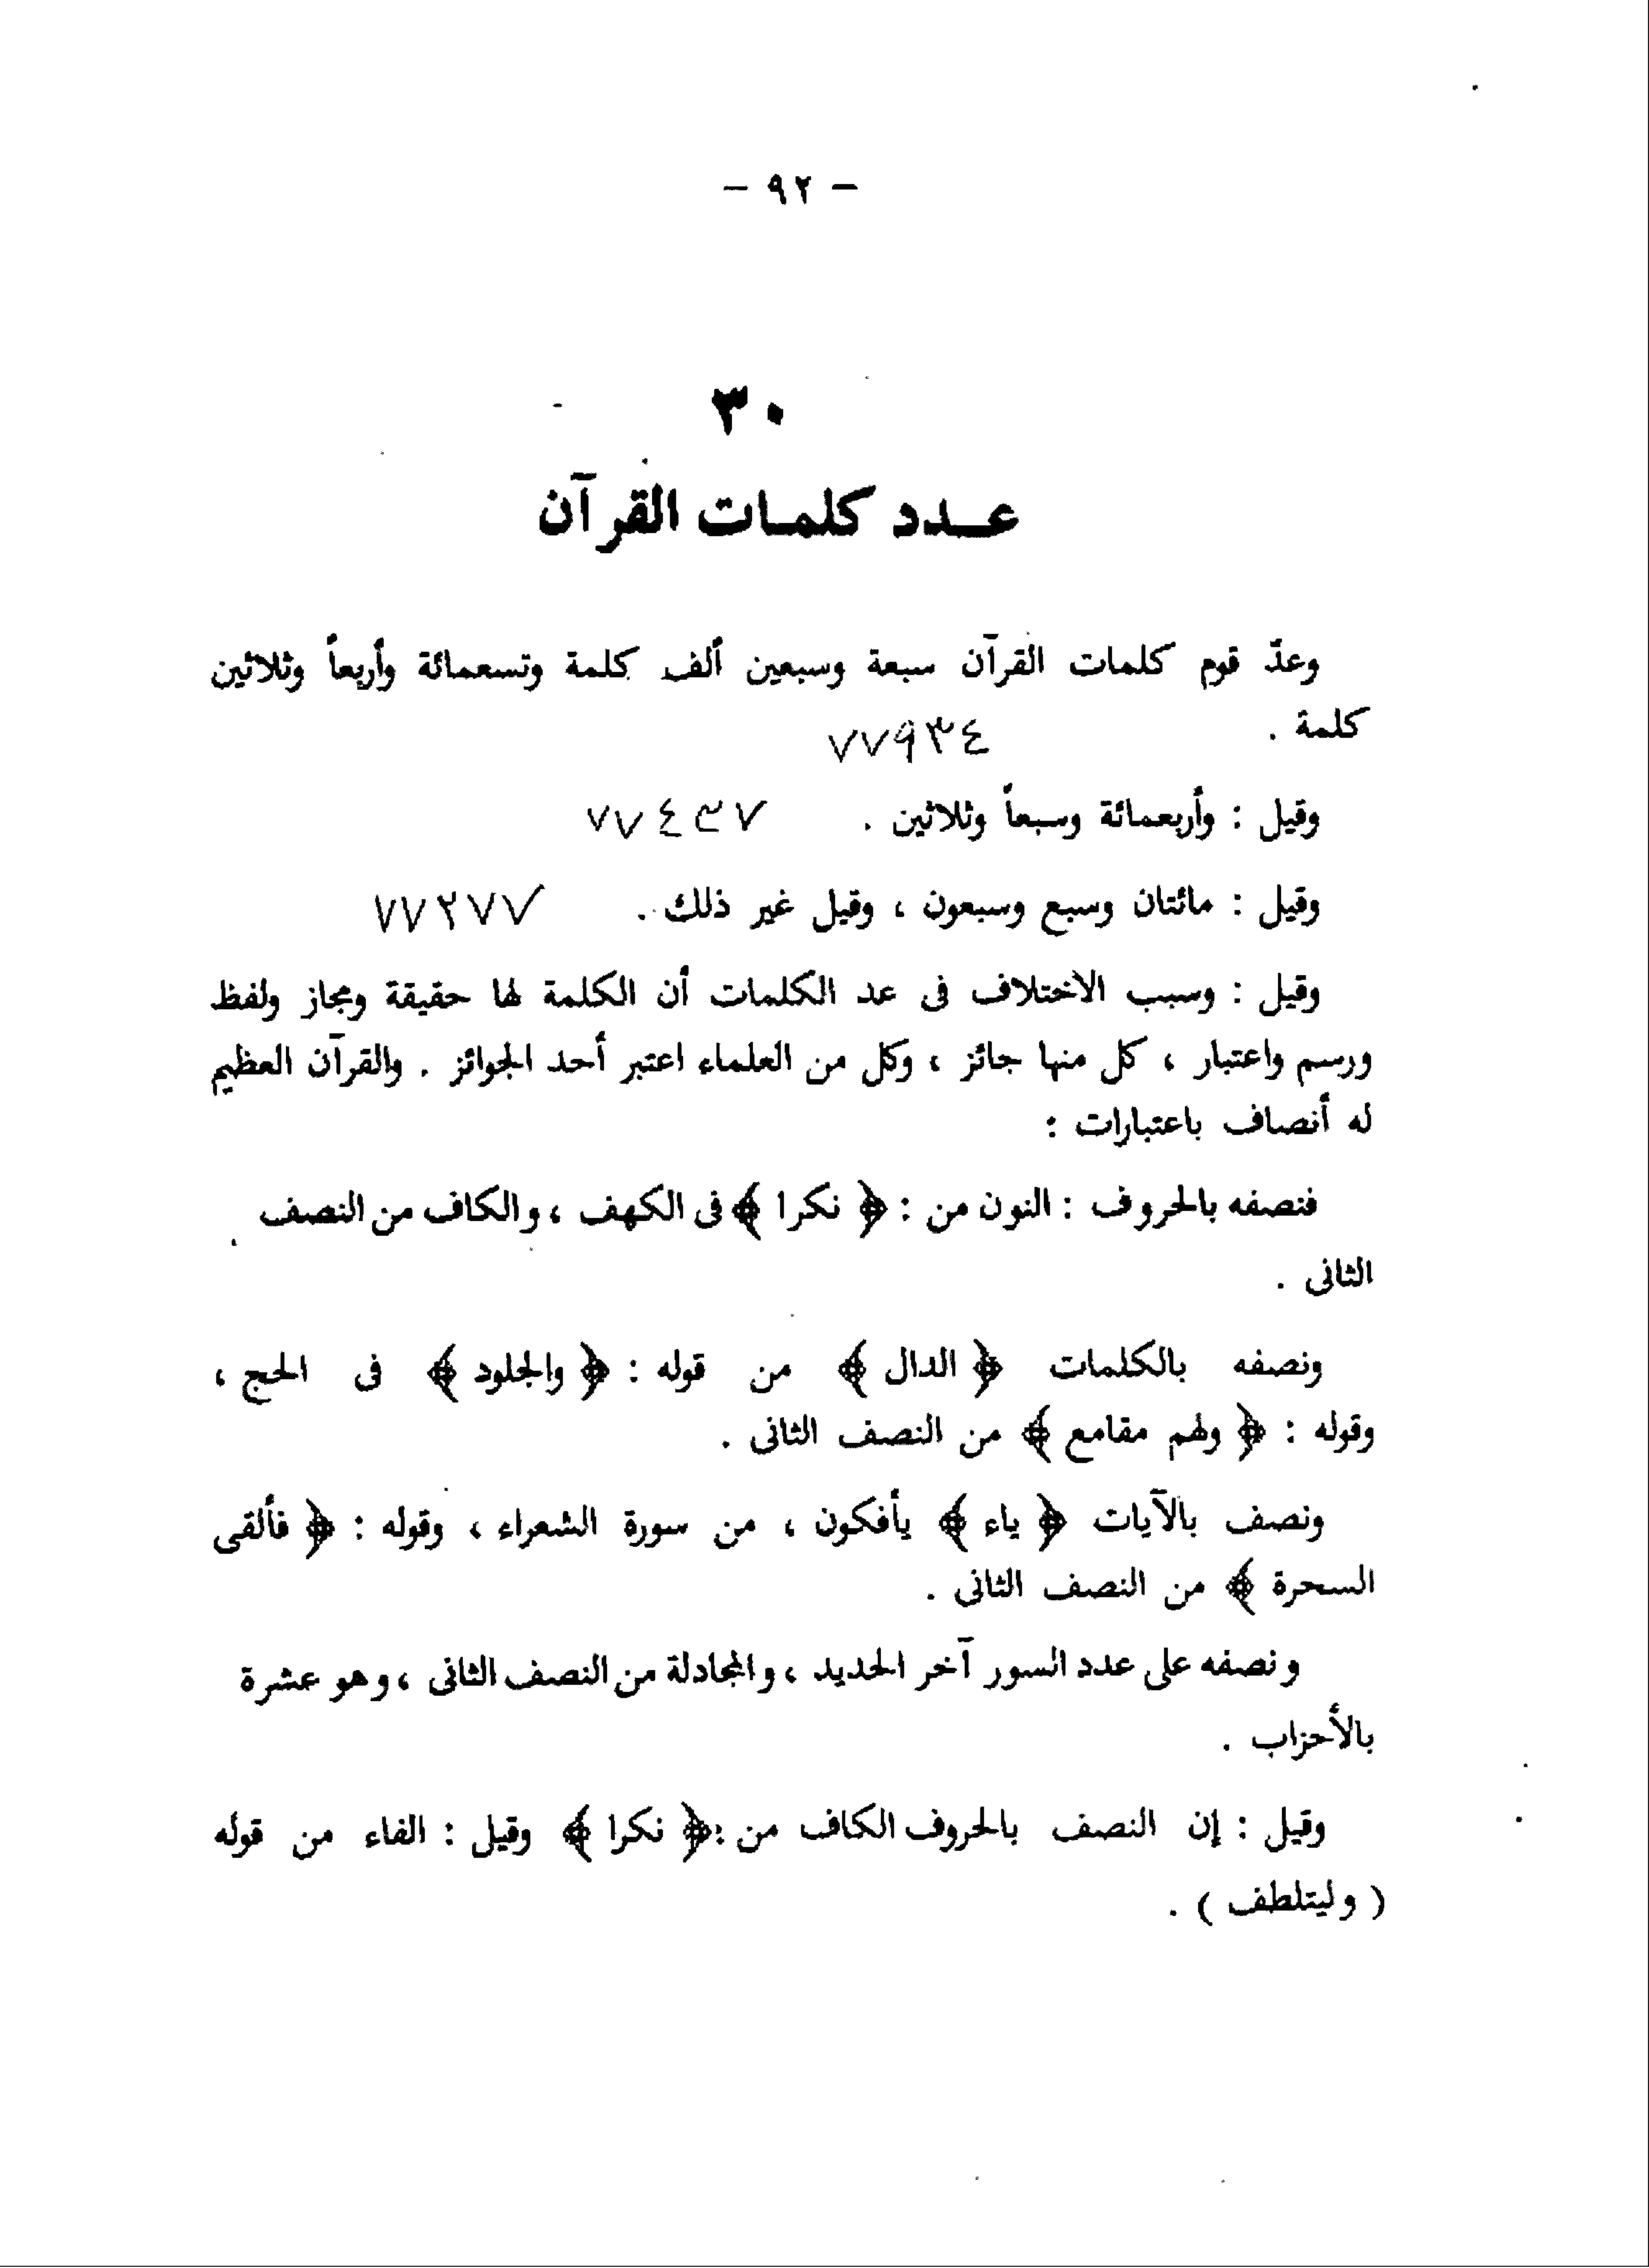 - ٩٢ -
٣٠
عدد كلمات القرآن
وعدّ قوم كلمات القرآن سبعة وسبعين ألف كلمة وتسعمائة وأربعاً وثلاثين
كلمة . ٧٧٩٣٤
وقيل : وأربعمائة وسبعاً وثلاثين . ٧٧٤٣٧
وقيل : مائتان وسبع وسبعون ، وقيل غير ذلك . ٧٧٢٧٧
وقيل : وسبب الاختلاف فى عد الكلمات أن الكلمة لها حقيقة ومجاز ولفظ
ورسم واعتبار ، كل منها جائز ، وكل من العلماء اعتبر أحد الجوائز . والقرآن العظيم
له أنصاف باعتبارات :
فنصفه بالحروف : النون من : ﴿ نكرا ﴾ فى الكهف ، والكاف من النصف
الثانى .
ونصفه بالكلمات ﴿ الدال ﴾ من قوله : ﴿ والجلود ﴾ فى الحج ،
وقوله : ﴿ ولهم مقامع ﴾ من النصف الثانى .
ونصف بالآيات ﴿ ياء ﴾ يأفكون ، من سورة الشعراء ، وقوله : ﴿ فألقى
السحرة ﴾ من النصف الثانى .
ونصفه على عدد السور آخر الحديد ، والمجادلة من النصف الثانى ، وهو عشرة
بالأحزاب .
وقيل : إن النصف بالحروف الكاف من : ﴿ نكرا ﴾ وقيل : الفاء من قوله
( وليتلطف ) .